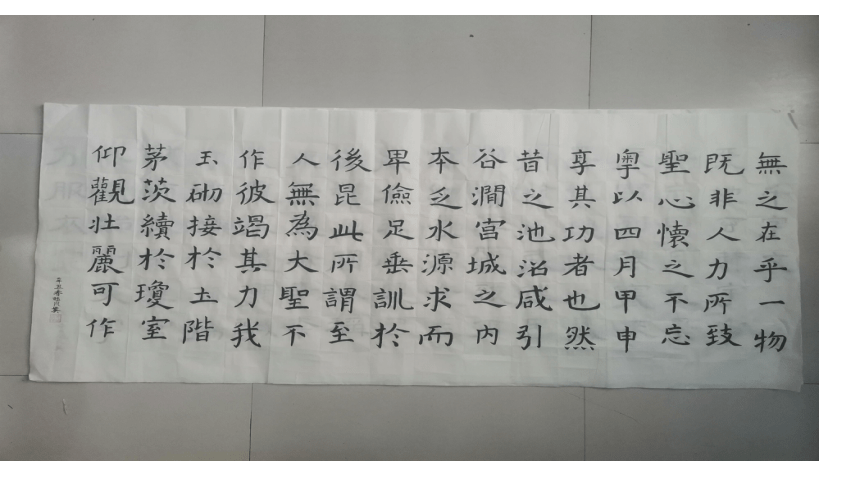 無之在乎一物
既非人力所致
聖心懷之不忘
粵以四月甲申
享其功者也然
昔之池沼咸引
谷澗宮城之內
本乏水源求而
卑儉足垂訓於
後昆此所謂至
人無為大聖不
作彼竭其力我
玉砌接於土階
茅茨續於瓊室
仰觀壯麗可作
辛丑春